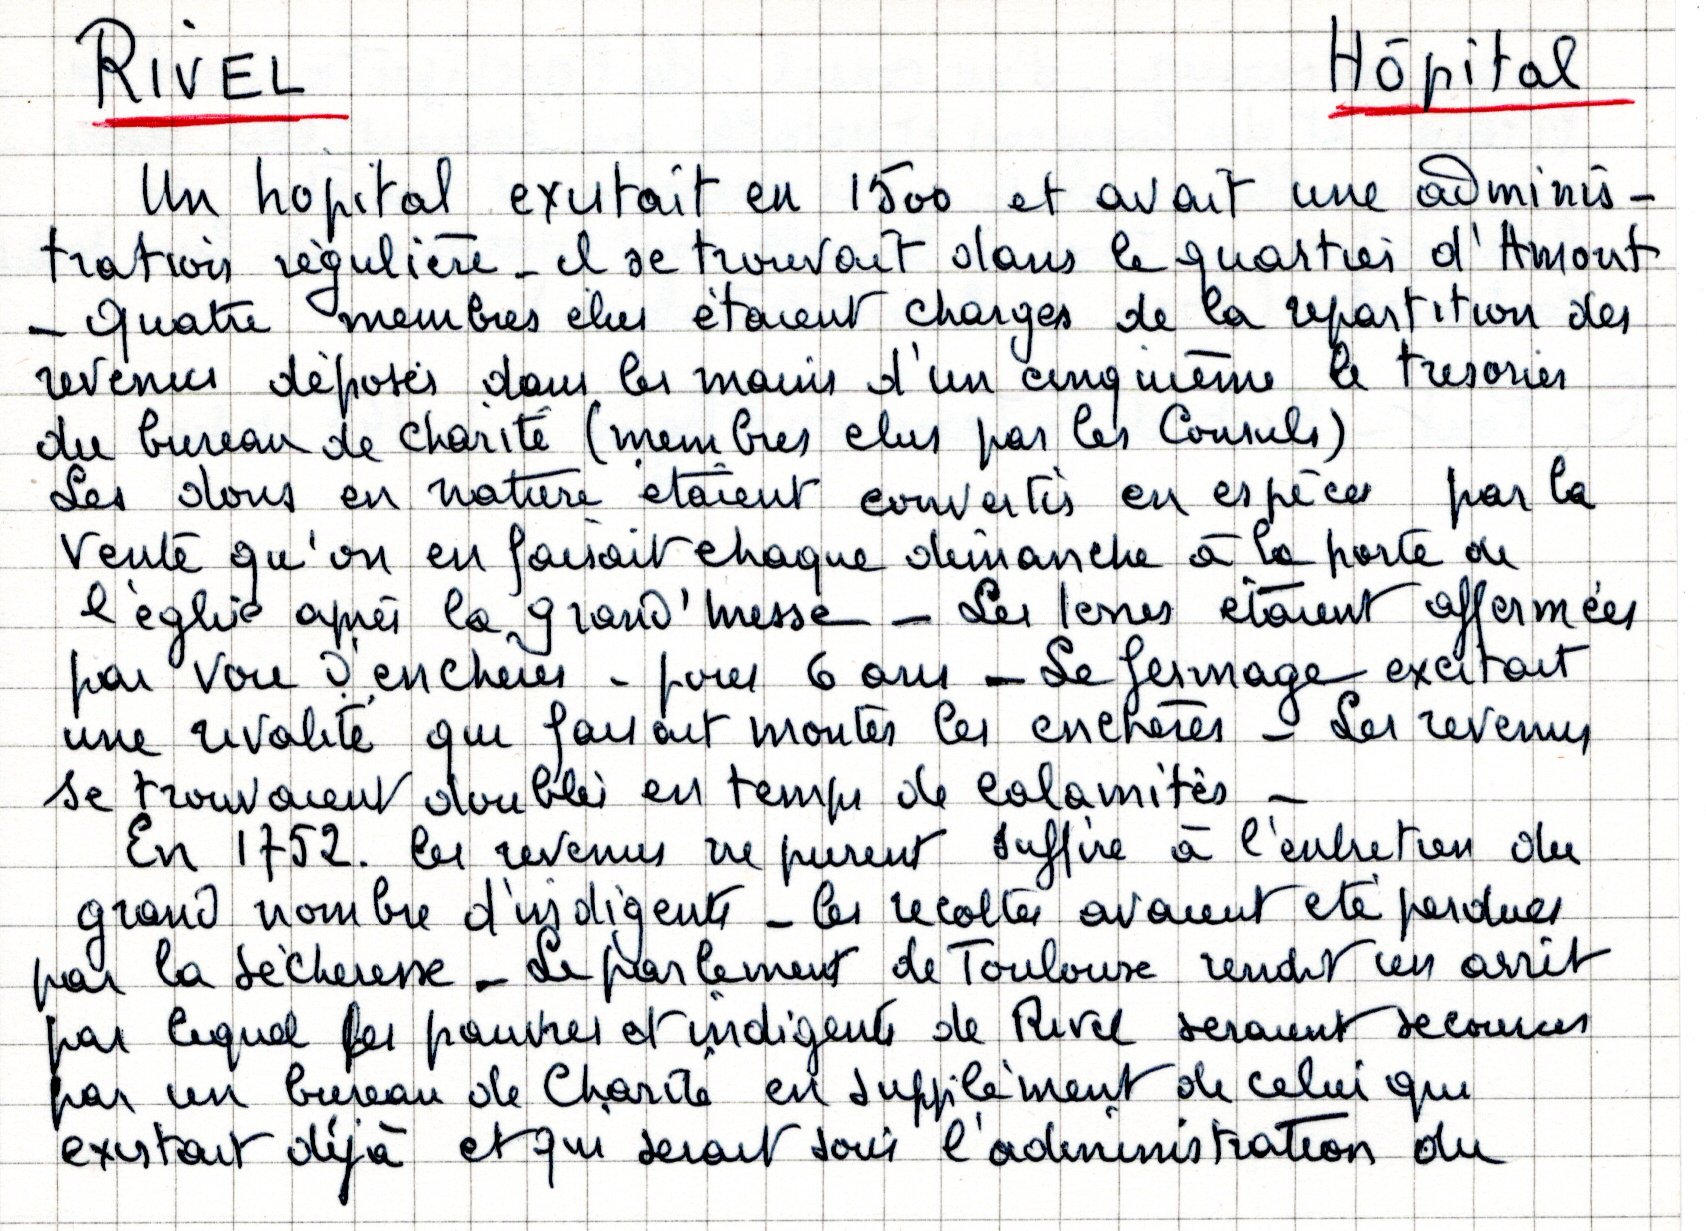 RIVEL Hôpital
Un hôpital existait en 1500 et avait une adminis-
tration régulière - il se trouvait dans le quartier d'Amont
- Quatre membres élus étaient chargés de la repartition des
revenus déposés dans les mains d'un cinquième le tresorier
du bureau de charité (membres elus par les Consuls)
Les dons en nature étaient convertis en espèces par la
vente qu'on en faisait chaque dimanche à la porte de
l'église après la grand'messe - Les terres étaient affermées
par voie d'enchères - pour 6 ans - Le fermage excitait
une rivalité qui faisait monter les enchères - Les revenus
se trouvaient doublés en temps de calamités -
En 1752. les revenus ne purent suffire à l'entretien du
grand nombre d'indigents - les recoltes avaient eté perdues
par la sécheresse - Le parlement de Toulouse rendit un arrêt
par lequel les pauvres et indigents de Rivel seraient secourus
par un bureau de Charité en supplément de celui qui
existait déjà et qui serait sous l'administration du